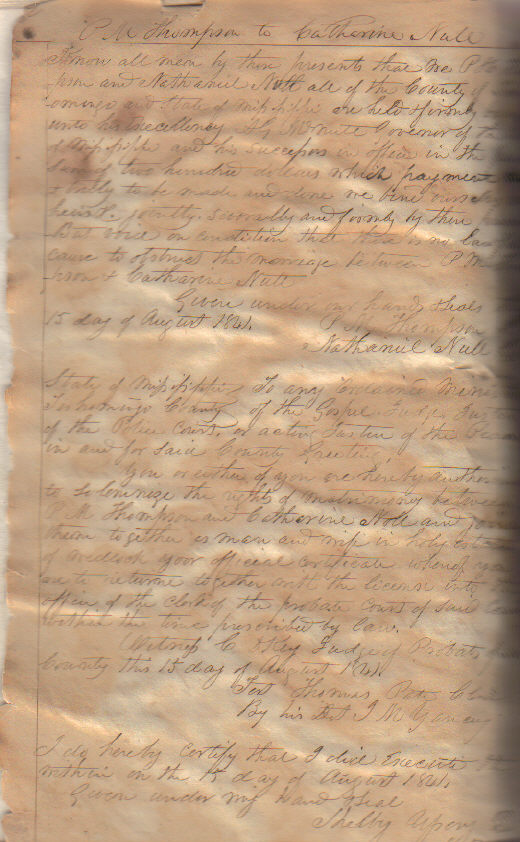 P M Thompson to Catharine Null
Know all men by these presents that we P M
pson and Nathaniel Null all of the County of
omingo and State of Mississippi are held & firmly
unto his Excellency A G McNutt Governor of
of Mississippi and his successors in office in the
sum of two hundred dollars which payment
& truly to be made and done we bind ourselves
heirs &c jointly severally and firmly by these
But void on condition that there is no
cause to obstruct the marriage between P M
pson & Catharine Null
Given under my hand & Seals
15 day of August 1841.
P M Thompson
Nathaniel Null
State of Mississippi To any Ordained
Tishomingo County of the Gospel Judge
of the Police Court, or acting Justice of the
in and for said County Greeting
You or either of you are hereby
to solemnize the rights of matrimony between
P. M Thompson and Catharine Null and
them together as man and wife in holy
of wedlock your official certificate whereof you
are to return together with the license into
office of the Clerk of the probate Court of said
within the time prescribed by Law.
Witness C Key Judge of Probate
County this 15 day of August 1841.
Test Thomas
By his Dpt J M Yancey
I do hereby certify that I did Execute the
within on the 15 day of August 1841.
Given under my Hand & Seal
Shelby